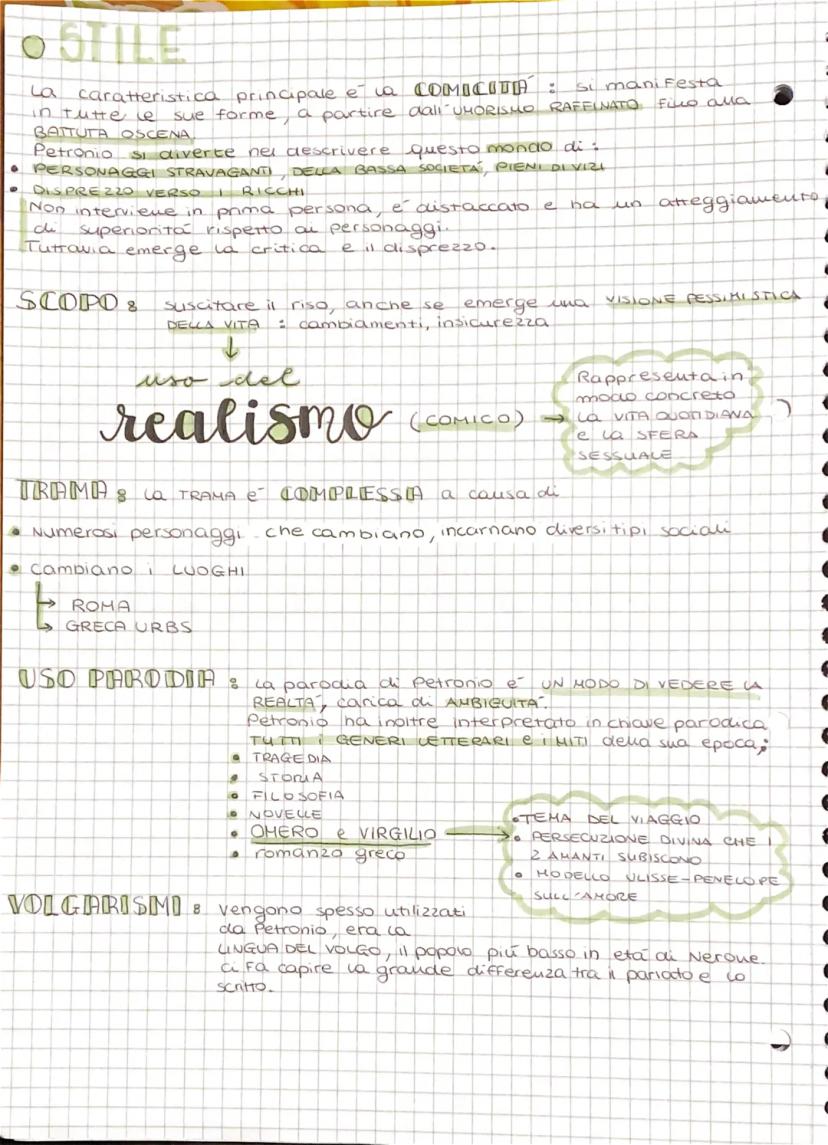 STILE
La caratteristica principale é la COMICITÁ : si manifesta
in tutte le sue forme, a partire dall'UMORISMO RAFFINATO fino alla
BATTUTA OSCENA.
Petronio si diverte nel descrivere questo mondo di :
• PERSONAGGI STRAVAGANTI, DELLA BASSA SOCIETÁ, PIENI DI VIZI
• DISPREZZO VERSO I RICCHI
Non interviene in prima persona, é distaccato e ha un atteggiamento
di superioritá rispetto ai personaggi.
Tuttavia emerge la critica e il disprezzo.
SCOPO : suscitare il riso, anche se emerge una VISIONE PESSIMISTICA
DELLA VITA : cambiamenti, insicurezza
↓
uso del
realismo (COMICO) →
Rappresenta in
modo concreto
LA VITA QUOTIDIANA
e la SFERA
SESSUALE
TRAMA : la TRAMA é COMPLESSA a causa di
• Numerosi personaggi che cambiano, incarnano diversi tipi sociali
• cambiano i LUOGHI
↳ ROMA
↳ GRECA URBS
USO PARODIA : La parodia di Petronio é UN MODO DI VEDERE LA
REALTÁ, carica di AMBIGUITÁ.
Petronio ha inoltre interpretato in chiave parodica
TUTTI i GENERI LETTERARI e i MITI della sua epoca;
• TRAGEDIA
• STORIA
• FILOSOFIA
• NOVELLE
• OMERO e VIRGILIO →
• romanzo greco
• TEMA DEL VIAGGIO
• PERSECUZIONE DIVINA CHE I
2 AMANTI SUBISCONO
• MODELLO ULISSE-PENELOPE
SULL'AMORE
VOLGARISMI : vengono spesso utilizzati
da Petronio, era la
LINGUA DEL VOLGO, il popolo piú basso in etá di Nerone.
ci fa capire la grande differenza tra il parlato e lo
scritto.